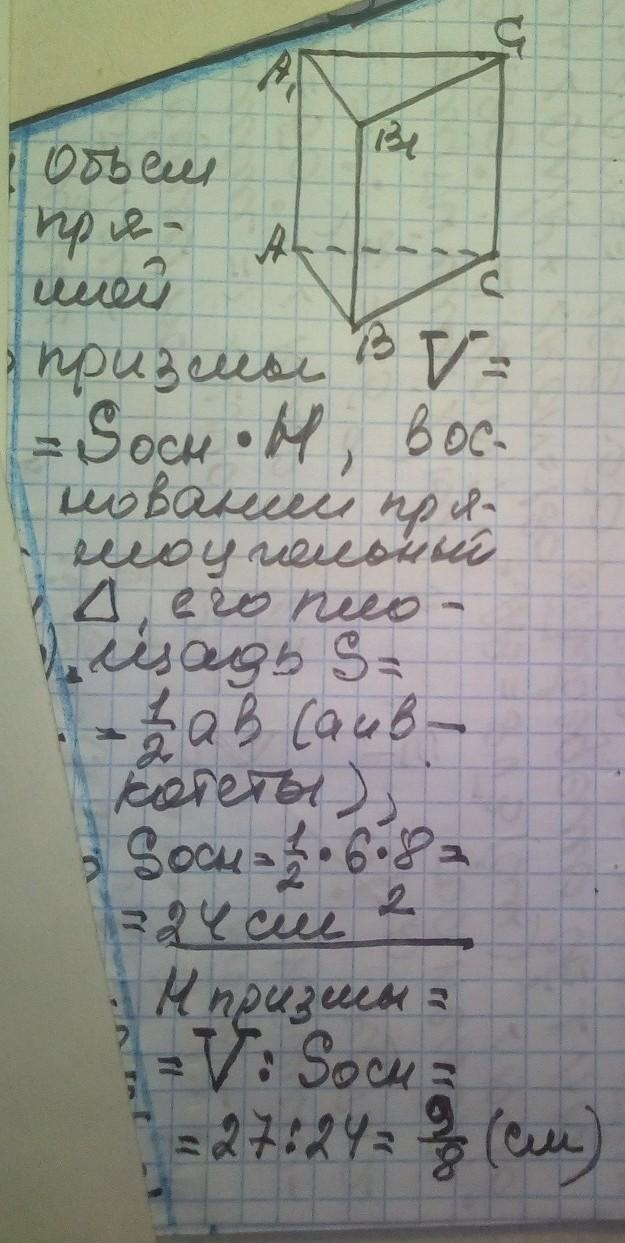 A₁ C₁
B₁
Объём
пря-
мой
A C
B
призмы V=
= Sосн • H, в ос-
новании пря-
моугольный
Δ, его пло-
щадь S=
= 1/2 ab (a и b —
катеты),
Sосн = 1/2 • 6 • 8 =
= 24 см²
H призмы =
= V : Sосн =
= 27 : 24 = 9/8 (см)